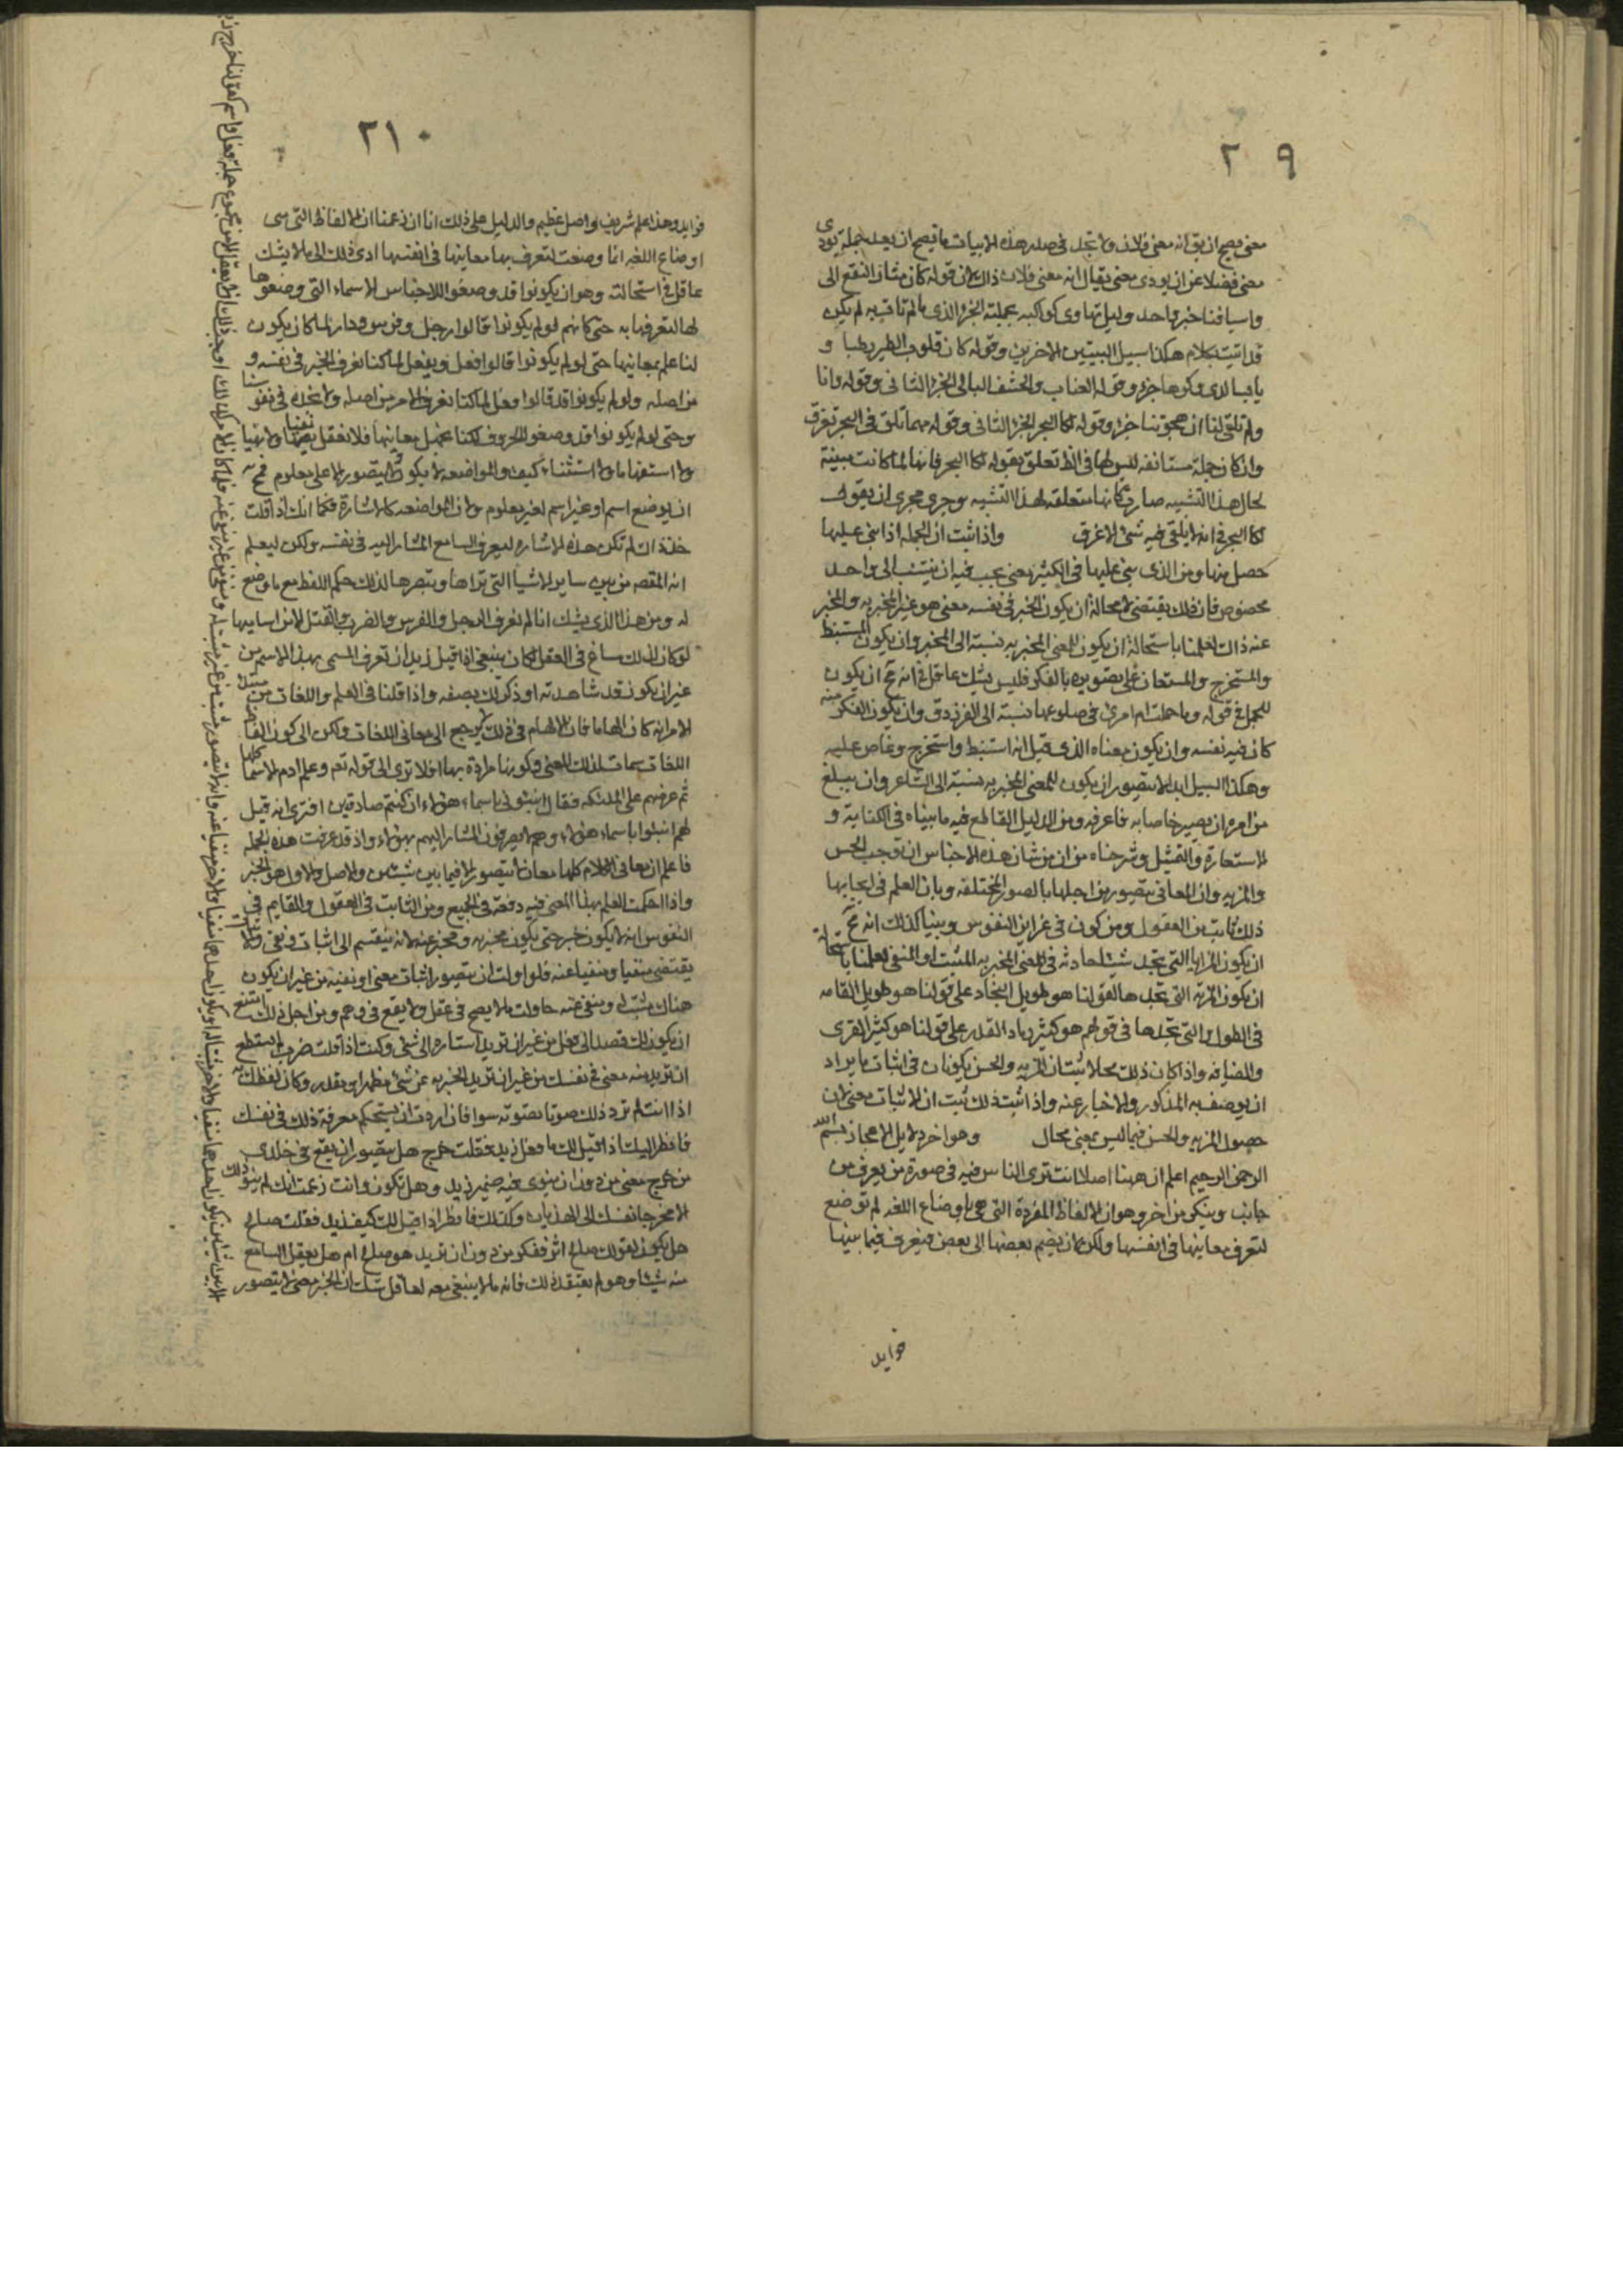 ٢٠٩
معنى يصح ان يق انه معنى فلان ولا تجد في صدر هذه الابيات ما يصح ان يعد جملة يودى
معنى فضلا عن ان يودى معنى يقال انه معنى فلان ذلك لان قوله كان مثار النقع الى
واسيافنا خبر واحد وليل تهاوى كواكبه بجملته الجزؤ الذى ما لم تات به لم يكن
قد اتيت بكلام هكذا سبيل البيتين الاخرين وقوله كان قلوب الطير رطبا و
يابسا لدى وكرها جزؤ وقوله العناب والحشف البالى الجزؤ الثانى وقوله وانا
وما تلقى لنا ان هجوتنا جزؤ وقوله لكا البحر الجزؤ الثانى وقوله مهما تلق فى البحر تغرق
وان كان جملة مستانفه ليس لها فى الظ تعلق بقوله لكا البحر فانها لما كانت مبينة
لحال هذا التشبيه صارت كانها متعلقه لهذا التشبيه وجرى مجرى ان يقول
لكا البحر فى انه لا يلقى فيه شئ الا غرق واذا ثبت ان الجمله اذا بنى عليها
حصل منها ومن الذى بنى عليها فى الكثير معنى يجب فيه ان ينتسب الى واحد
مخصوص فان ذلك يقتضى لا محالة ان يكون الخبر فى نفسه معنى هو غير المخبر به والمخبر
عنه ذاك لعلمنا باستحالة ان يكون للمعنى المخبر به نسبة الى المخبر وان يكون المستنبط
والمستخرج والمستعان على تصويره بالفكر فليس يشك عاقل فى انه مح ان يكون
للحمل فى قوله وما حملت ام امرئ فى ضلوعها نسبة الى الفرزدق وان يكون الفكر منه
كان فيه نفسه وان يكون معناه الذى قيل انه استنبط واستخرج وغاص عليه
وهكذا السبيل ابدا لا يتصور ان يكون للمعنى المخبر به نسبة الى الشاعر وان يبلغ
من امره ان يصير خاصا به فاعرفه ومن الدليل القاطع فيه ما بيناه فى الكناية و
الاستعارة والتمثيل وشرحناه من ان من شان هذه الاجناس ان توجب الحسن
والمزيه وان المعانى يتصور من اجلها بالصور المختلفه وبان العلم فى ايجابها
ذلك ثابت من العقول ومن كون فى غرايز النفوس وبينا كذلك انه مح
ان يكون المزايا التى تحدث بها حادثه فى المعنى المخبر به المثبت او المنفى لعلمنا باستحالة
ان يكون المزيه التى تجدها لقولنا هو طويل النجاد على قولنا هو طويل القامه
فى الطول والتى تجدها فى قولهم هو كثير رماد القدر على قولنا هو كثير القرى
والضيافه واذا كان ذلك محالا ثبت ان المزيه والحسن يكونان فى اثبات ما يراد
ان يوصف به المذكور والاخبار عنه واذا ثبت ذلك ثبت ان الاثبات معنى لان
حصول المزيه والحسن فيما ليس بمعنى محال وهو اخر دلايل الاعجاز بسم الله
الرحمن الرحيم اعلم ان ههنا اصلا انت ترى الناس فيه فى صورة من يعرف من
جانب وينكر من اخر وهو ان الالفاظ المفردة التى هى اوضاع اللغه لم توضع
لتعرف معانيها فى انفسها ولكن لان يضم بعضها الى بعض فيعرف فيما بينها
فوايد
٢١٠
فوايد وهذا علم شريف واصل عظيم والدليل على ذلك انا ان زعمنا ان الالفاظ التى هى
اوضاع اللغه انما وضعت لتعرف بها معانيها فى انفسها ادى ذلك الى ما لا يشك
عاقل فى استحالته وهو ان يكونوا قد وضعوا للاجناس الاسماء التى وضعوها
لها لتعرفها به حتى كانهم لو لم يكونوا قالوا رجل وفرس ودار لما كان يكون
لنا علم بمعانيها حتى لو لم يكونوا قالوا فعل ويفعل لما كنا نعرف الخبر فى نفسه و
من اصله ولو لم يكونوا قد قالوا افعل لما كنا نعرف الامر من اصله ولا نجده فى نفوسنا
وحتى لو لم يكونوا قد وضعوا الحروف لكنا نجهل معانيها فلا نعقل نفيا ولا نهيا
ولا استفهاما ولا استثناء كيف والمواضعه لا يكون ولا يتصور الا على معلوم فمح
ان يوضع اسم او غير اسم لغير معلوم ولان المواضعه كالاشارة فكما انك اذا قلت
خذ ذاك لم تكن هذه الاشاره ليعرف السامع المشار اليه فى نفسه ولكن ليعلم
انه المقصود من بين ساير الاشيا التى تراها وتبصرها كذلك حكم اللفظ مع ما وضع
له ومن هذا الذى يشك انا لم نعرف الرجل والفرس والضرب والقتل الا من اساميها
لو كان لذلك مساغ فى العقل لكان ينبغى اذا قيل زيد ان تعرف المسمى بهذا الاسم من
غير ان يكون قد شاهدته او ذكر لك بصفه واذا قلنا فى العلم واللغات من مبتدا
الامر انه كان الهاما فان الالهام فى ذلك لا يرجع الى معانى اللغات ولكن الى كون الفاظ
اللغات سمات لذلك المعنى وكونها مرادة بها افلا ترى الى قوله تعم وعلم ادم الاسما كلها
ثم عرضهم على الملئكه فقال انبئونى باسماء هؤلاء ان كنتم صادقين افترى انه قيل
لهم انبئوا باسماء هؤلاء وهم لا يعرفون المشار اليهم بهؤلاء واذ قد عرفت هذه الجمله
فاعلم ان معانى الكلام كلها معان لا يتصور الا فيما بين شيئين والاصل والاول هو الخبر
واذا احكمت العلم بهذا المعنى فيه دفعة فى الجميع ومن الثابت فى العقول والقايم فى
النفوس انه لا يكون خبر حتى يكون مخبر به ومخبر عنه لانه ينقسم الى اثبات ونفى
يقتضى منفيا ومنفيا عنه فلو حاولت ان يتصور اثبات معنى او نفيه من غير ان يكون
هناك مثبت له ومنفى عنه حاولت ما لا يصح فى عقل ولا يقع فى وهم ومن اجل ذلك امتنع
ان يكون لك قصد الى فعل من غير ان تريد اسناده الى شئ وكنت اذا قلت ضرب لم تستطع
ان تريد منه معنى فى نفسك من غير ان تريد الخبر به عن شئ مظهر او مقدر وكان لفظك به
اذا انت لم ترد ذلك صوتا تصوته سوا فان اردت ان يستحكم معرفة ذلك فى نفسك
فانظر اليك اذا قيل لك ما فعل زيد فقلت خرج هل يتصور ان يقع فى خلدك
من خرج معنى من دون ان ينوى فيه ضمير زيد وهل تكون وانت زعمت انك لم تنو ذلك
الا مخرجا نفسك الى الهذيان وكذلك فانظر اذا قيل لك كيف زيد فقلت صالح
هل يكون لقولك صالح اثر فى نفسك من دون ان تريد هو صالح ام هل يعقل السامع
منه شيئا وهو لم يعتقد ذلك فانه ما لا ينبغى معه لعاقل شك ان الخبر معنى لا يتصور